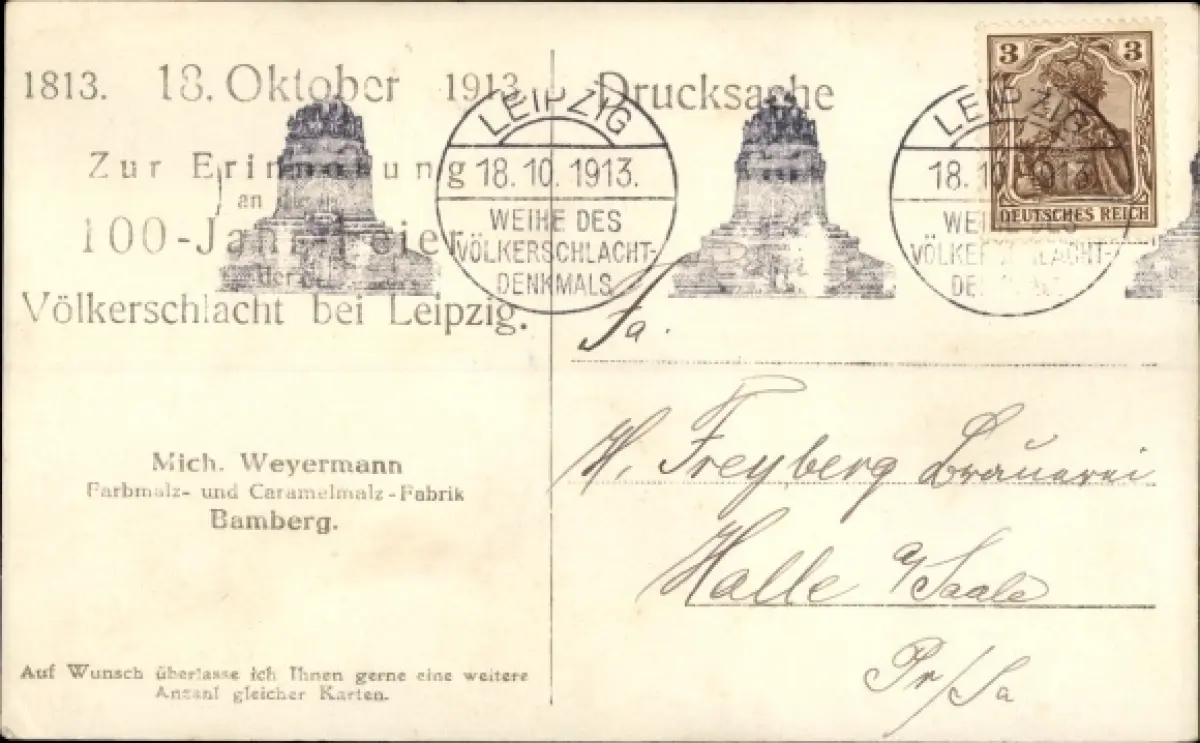 1813. 18. Oktober 1913.
Zur Erinnerung
an die
100-Jahr-Feier
der
Völkerschlacht bei Leipzig.
Mich. Weyermann
Farbmalz- und Caramelmalz-Fabrik
Bamberg.
Auf Wunsch überlasse ich Ihnen gerne eine weitere
Anzahl gleicher Karten.
LEIPZIG
18. 10. 1913.
WEIHE DES
VÖLKERSCHLACHT-
DENKMALS
Drucksache
3 3
DEUTSCHES REICH
LEIPZIG
18. 10. 1913.
WEIHE DES
VÖLKERSCHLACHT-
DENKMALS
Fa.
W. Freyberg Brauerei
Halle a/Saale
Pr/Sa